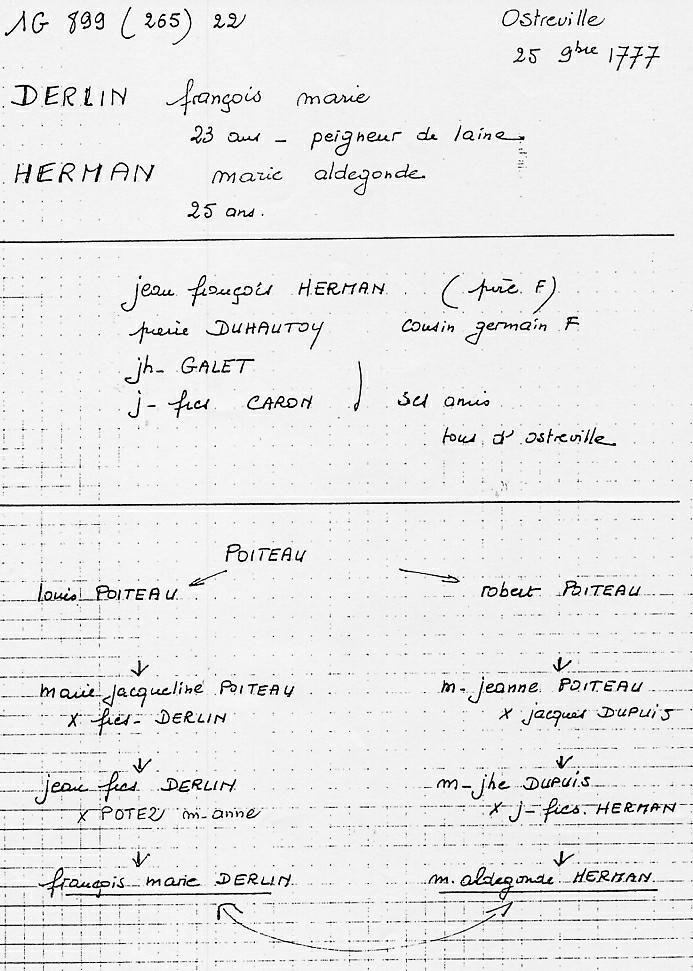 1G 899 (265) 22
Ostreville
25 9bre 1777
DERLIN françois marie
23 ans - peigneur de laine
HERMAN marie aldegonde
25 ans.
jean françois HERMAN (père F)
pierre DUHAUTOY cousin germain F
jh- GALET
j- fçs CARON ses amis
tous d'ostreville
POITEAU
louis POITEAU
robert POITEAU
marie jacqueline POITEAU
x fçs- DERLIN
m- jeanne POITEAU
x jacques DUPUIS
jean fçs DERLIN
x POTEZ m-anne
m-jhe DUPUIS
x j-fçs. HERMAN
françois marie DERLIN
m. aldegonde HERMAN